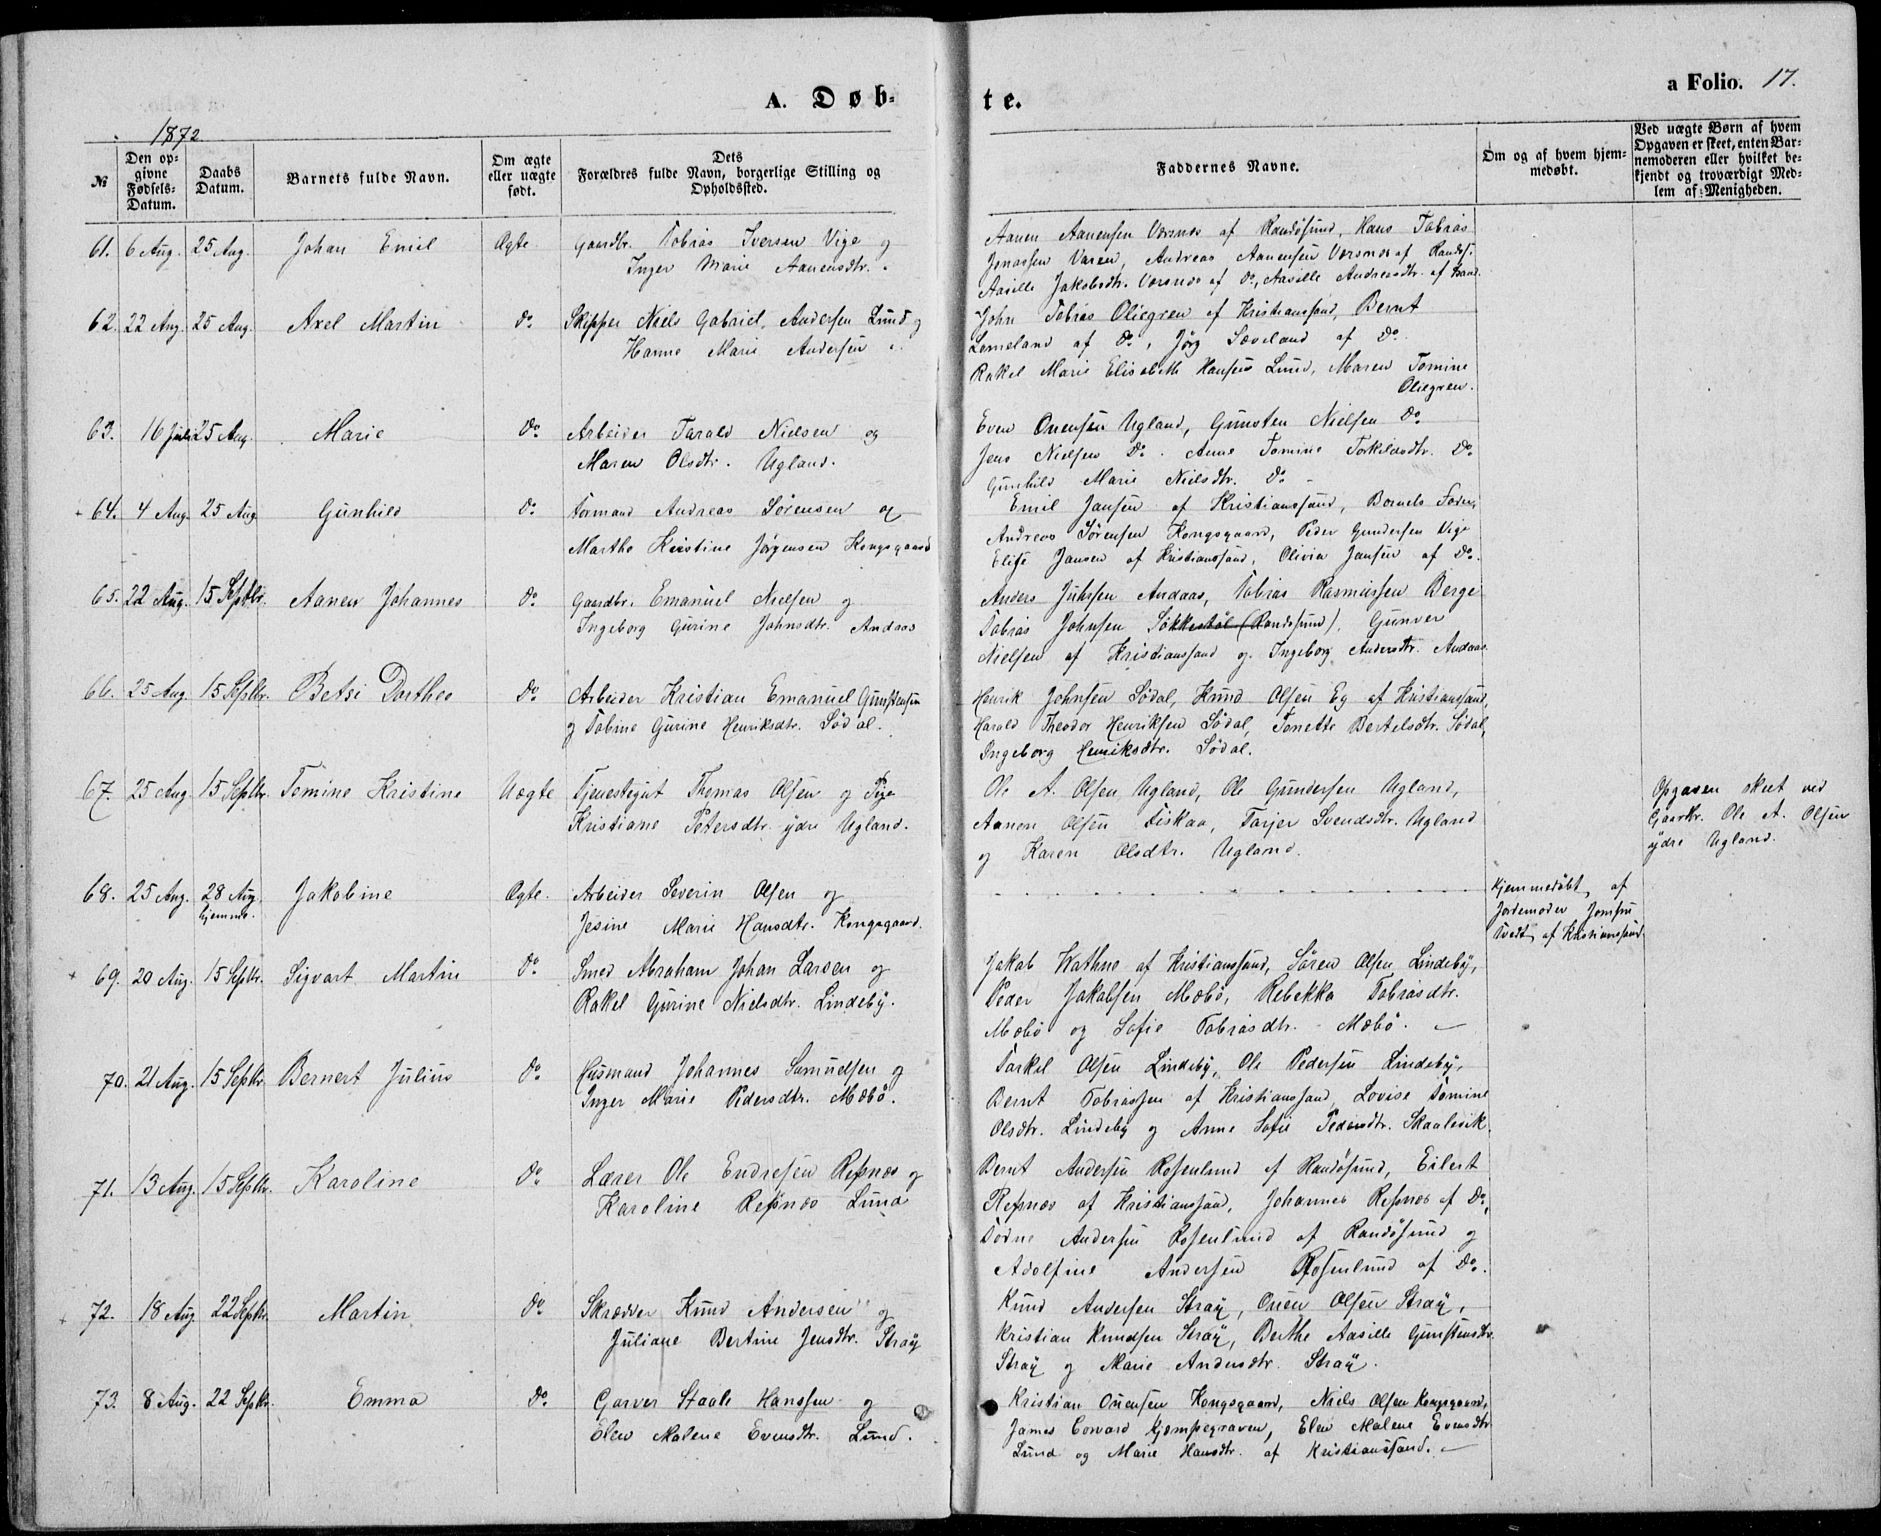 A. Døb-
te.
a Folio. 17.
1872
№
Den op-
givne
Fødsels-
Datum.
Daabs
Datum.
Barnets fulde Navn.
Om ægte
eller uægte
født.
Dets
Forældres fulde Navn, borgerlige Stilling og
Opholdssted.
Faddernes Navne.
Om og af hvem hjem-
medøbt.
Ved uægte Børn af hvem
Opgaven er skeet, enten Bar-
nemoderen eller hvilket be-
kjendt og troværdigt Med-
lem af Menigheden.
61. 6 Aug. 25 Aug. Johan Emil Ægte Gaardbr. Tobias Iversen Vige og
Inger Marie Aanensdtr.
Aanen Aanensen Vorsnes af Randøsund, Hans Tobias
Jonassen Varen, Andreas Aanensen Vorsnes af Randøs.
Aasille Jakobsdtr. Vorsnes af Do, Aasille Andreasdtr. af
62. 22 Aug. 25 Aug. Axel Martin Do. Skipper Niels Gabriel Andersen Lund og
Hanne Marie Andersen
John Tobias Oliegren af Kristianssand, Bernt
Lomeland af Do, Jørg Sæveland af Do.
Rakel Marie Elisabeth Hansen Lund, Maren Tomine
Oliegren.
63. 16 Juli 25 Aug. Marie Do. Arbeider Tarald Nielsen og
Maren Olsdtr. Ugland.
Even Onensen Ugland, Gunsten Nielsen Do
Jens Nielsen Do. Anne Tomine Torkildsdtr. Do
Gunhild Marie Nielsdtr. Do
64. 4 Aug. 25 Aug. Gunhild Do. Formand Andreas Sørensen og
Marthe Kristine Jørgensen Kongsgaard
Emil Jansen af Kristianssand, Barnets Fader,
Andreas Sørensen Kongsgaard, Peder Gundersen Vige
Elise Jansen af Kristianssand, Olivia Jansen af Do.
65. 22 Aug. 15 Septbr. Aanen Johannes Do. Gaardbr. Emanuel Nielsen og
Ingeborg Gurine Johnsdtr. Andaas
Anders Andaas, Tobias Rasmussen Berge
Tobias Johnsen Søkkestøl (Randøsund), Gunver
Nielsen af Kristianssand og Ingeborg Andersdtr. Andaas
66. 25 Aug. 15 Septbr. Betsi Dorthea Do Arbeider Kristian Emanuel Gunstensen
og Tobine Gurine Henriksdtr. Sødal.
Henrik Johnsen Sødal, Knud Olsen Eg af Kristianssand,
Harald Theodor Henriksen Sødal, Tonette Bertelsdtr. Sødal,
Ingeborg Henriksdtr. Sødal.
67. 25 Aug 15 Septbr. Tomine Kristine Uægte Tjenestegut Thomas Olsen og Pige
Kristiane Petersdtr. ydre Ugland.
Ole A. Olsen Ugland, Ole Gundersen Ugland,
Aanen Olsen Fiskaa, Tarjer Svendsdtr. Ugland
og Karen Olsdtr. Ugland.
Opgaven skeet ved
Gaardbr. Ole A. Olsen
ydre Ugland.
68. 25 Aug. 28 Aug. Jakobine Ægte. Arbeider Severin Olsen og
hjemme.
Jesine Marie Hansdtr. Kongsgaard.
Hjemmedøbt af
Jordemoder Jomfru
Tvedt af Kristianssand.
69. 20 Aug. 15 Septbr. Sigvart Martin Do. Smed Abraham Johan Larsen og
Rakel Gurine Nielsdtr. Lindeby.
Jakob Wathne af Kristianssand, Søren Olsen Lindeby,
Peder Jakobsen Mæbø, Rebekka Tobiasdtr.
Mæbø og Sofie Tobiasdtr. Mæbø.
70. 21 Aug. 15 Septbr. Bernert Julius Do. Husmand Johannes Samuelsen og
Inger Marie Pedersdtr. Mæbø.
Torkel Olsen Lindeby, Ole Pedersen Lindeby,
Bernt Tobiassen af Kristianssand, Lovise Tomine
Olsdtr. Lindeby og Anne Sofie Pedersdtr. Skaalevik.
71. 13 Aug. 15 Septbr. Karoline Do. Lærer Ole Endresen Refsnes og
Karoline Refsnes Lund
Bernt Andersen Rosenlund af Randøsund, Eilert
Refsnes af Kristianssand, Johannes Refsnes af Do,
Andersen Rosenlund af Randøsund og
Adolfine Andersen Rosenlund af Do.
72. 18 Aug 22 Septbr. Martin Do Skrædder Knud Andersen og
Juliane Bertine Jensdtr. Straÿ
Knud Andersen Straÿ, Onen Olsen Straÿ,
Kristian Knudsen Straÿ, Berthe Aasille Gunstensdtr.
Straÿ og Marie Andersdtr. Straÿ.
73. 8 Aug. 22 Septbr. Emma Do. Garver Staale Hanssen og
Elen Malene Evensdtr. Lund.
Kristian Onensen Kongsgaard, Niels Olsen Kongsgaard,
James Corvard Kjempegraven, Elen Malene Evensdtr.
Lund og Marie Hansdtr. af Kristianssand.